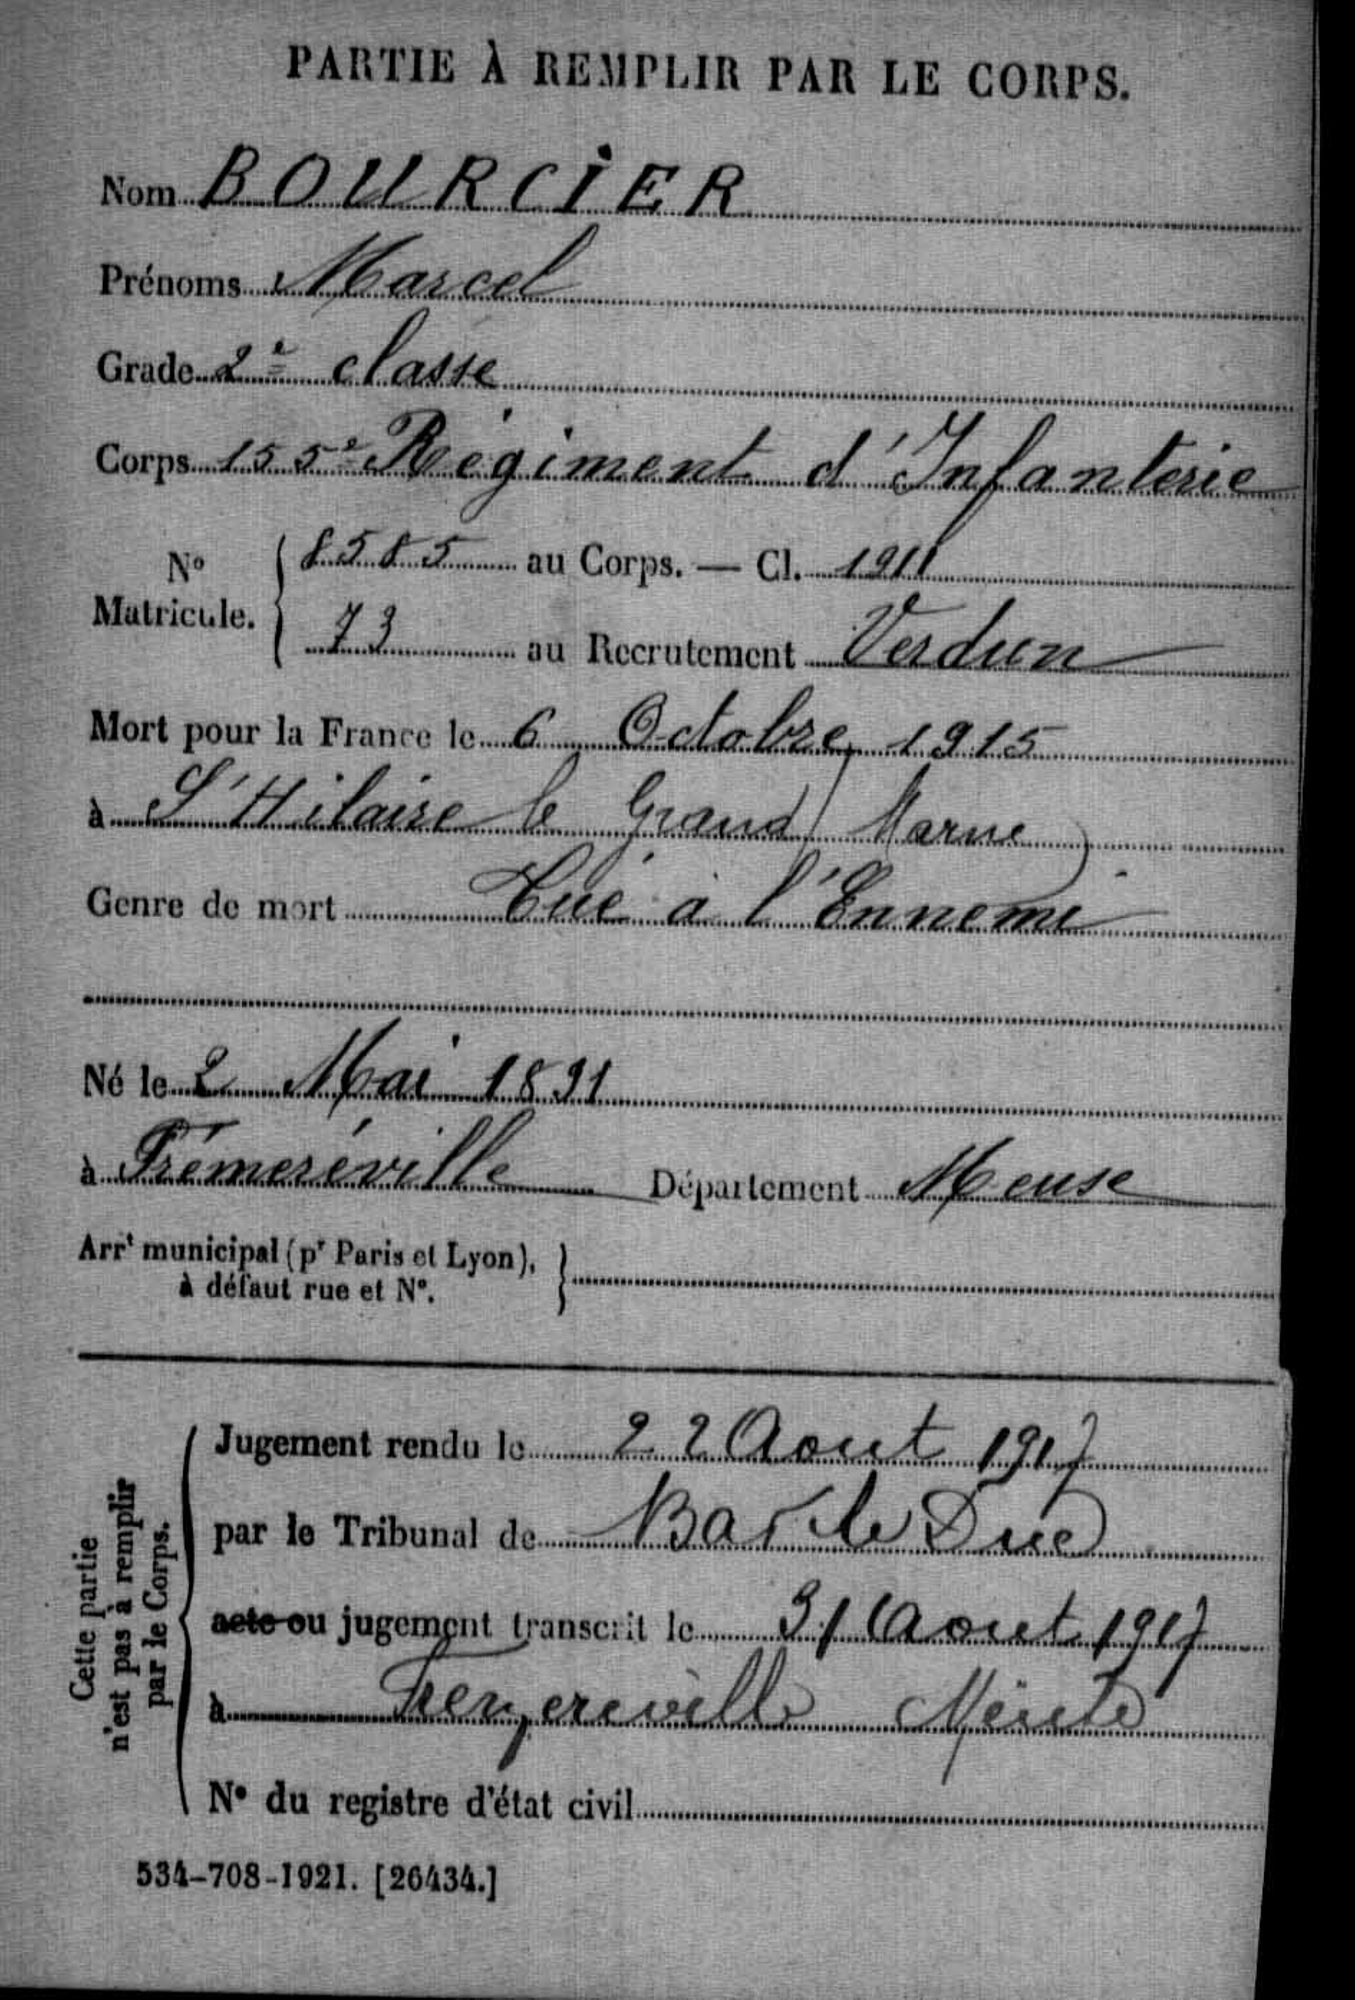 PARTIE À REMPLIR PAR LE CORPS.
Nom BOURCIER
Prénoms Marcel
Grade 2e classe
Corps 155e Régiment d'Infanterie
No Matricule. { 8585 au Corps. — Cl. 1911
73 au Recrutement Verdun
Mort pour la France le 6 Octobre 1915
à St Hilaire le Grand (Marne)
Genre de mort Tué à l'Ennemi
Né le 2 Mai 1891
à Frémeréville Département Meuse
Arrt municipal (pr Paris et Lyon), à défaut rue et No. }
Cette partie n'est pas à remplir par le Corps.
Jugement rendu le 22 Aout 1917
par le Tribunal de Bar le Duc
acte ou jugement transcrit le 31 Aout 1917
à
No du registre d'état civil
534-708-1921. [26434.]